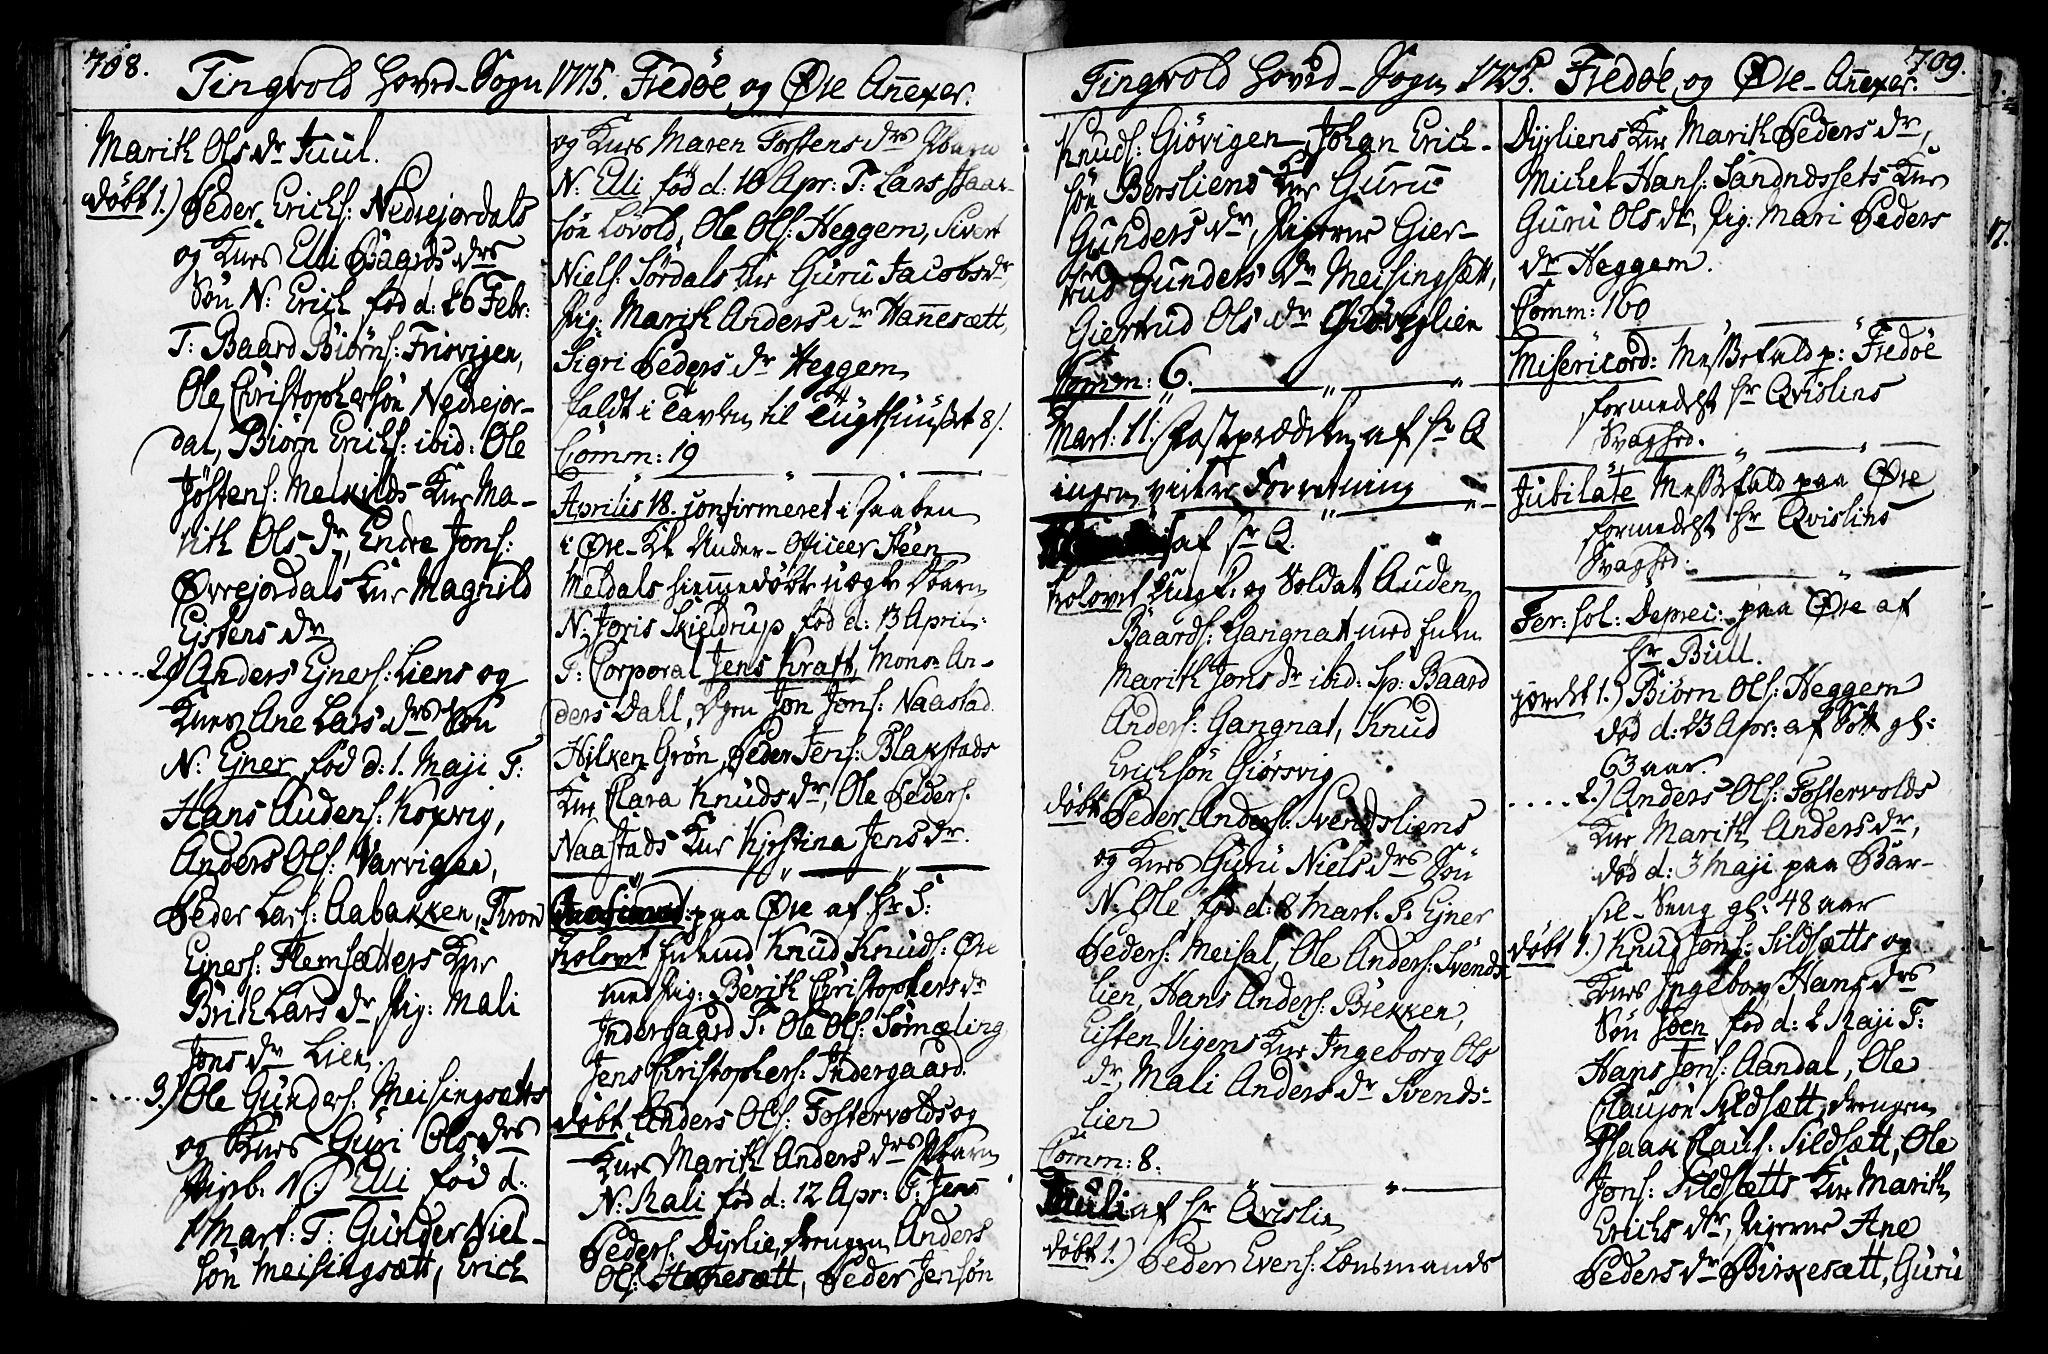 708.
Tingvold Hoved-Sogn 1775. Fredöe og Øre Anexer.
Marith Ols dr Juul.
döbt 1.) Peder Erichs: Nedrejordals
og Knes Elli Baards drs
Sön N: Erich, föd d: 26 Febr:
T: Baard Biörns: Frisvigen,
Ole Christophersön Nedrejor-
dal, Biörn Erichs: ibid: Ole
Jöstens: Melkilds Kne Ma-
rith Ols dr, Endre Jons:
Øvrejordals Kne Magnild
Eistens dr
2) Anders Ejners: Liens og
Knes Ane Lars drs Sön
N: Ejner föd d: 1. Maji T:
Hans Audens: Kopvig,
Anders Ols: Varvigen,
Peder Lars: Aabakken, Tron
Ejners: Flemsætters Kne
Brith Lars dr Pig: Mali
Jons dr Lien.
3.) Ole Gunders: Meisingsætts
og Knes Guri Ols drs
N: Elli föd d:
1 Mart: T: Gunder Niel-
sön Meisingsætt, Erich
og Knes Maren Torstens drs Pbarn
N: Elli föd d: 10 Apr: T: Lars
sön Lövold, Ole Ols: Heggem, Sivert
Niels: Sördals Kne Guru Jacobs dr
Pig: Marith Anders dr Hanesætt,
Sigri Peders dr Heggem
faldt i Tavlen til Tügthüüset 8 s.
Comm: 19
Aprilis 18. confirmeret i Daaben
i Øre-Kk Under-Officeer Steen
Meldals hiemmedöbt uægte Dbarn
N: Joris Skieldrup, föd d: 13 April:
T: Corporal Jens Kraft, Monsr An-
ders Dall, Jon Jons: Naastad
Hilken Grön, Peder Jens: Blakstads
Kne Clara Knuds dr, Ole Peders.
Naastads Kne Kjrstina Jens dr.
paa Øre af Hr S:
trolovet Knud Knuds: Øre
med Pig: Berith Christophers dr
Indergaard T: Ole Ols: Sømæling
Jens Christophers: Indergaard.
döbt Anders Ols: Fostervolds og
Kne Marith Anders drs Pbarn
N: Mali föd d: 12 Apr: T: Jens
Peders: Dyrlie, drengen Anders
Ols: Hanesætt, Peder Jensön
709.
Tingvold Hoved-Sogn 1775. Fredöe, og Øre-Anexer.
Knuds: Giövigen, Johan Erich-
sön Bersliens Kne Guru
Gunders dr, Pigerne Gier-
trud Gunders dr Meisingsætt,
Giertrud Ols dr
Comm: 6.
Mart: 11. Fasteprædiken af Hr Q
ingen videre Forretning
af Hr Q.
trolovet Ungk: og Soldat Auden
Baards: Gangnat med
Marith Jons dr ibid: Sp: Baard
Anders: Gangnat, Knud
Ericksön Giörsvig
döbt Peder Anders: Svendsliens
og Knes Guru Niels drs Sön
N: Ole föd d: 8 Mart: T: Ejner
Peders: Meisal, Ole Anders: Svends-
lien, Hans Anders: Brekken,
Eisten Vigens Kne Ingeborg Ols
dr, Mali Anders dr Svends-
lien
Comm: 8.
af Hr Qvislin
döbt 1.) Peder Evens: Lensmands
Dyrliens Kne Marith Peders dr,
Michel Hans: Sandnæssets Kne
Guru Ols dr, Pig: Mari Peders
dr Heggem.
Comm: 160
Misericord: Messefald p: Fredöe
formedelst Hr Qvislins
Svaghed.
Jubilate Messefald paa Øre
formedelst Hr Qvislins
Svaghed.
Fer: sol: Deprec: paa Øre af
Hr Bull.
jordet 1.) Biörn Ols: Heggem
död d: 23 Apr: af Sott gl:
63 aar.
2.) Anders Ols: Fostervolds
Kne Marith Anders dr,
död d: 3 Maji paa Bar-
sel-Seng gl: 48 aar
döbt 1.) Knud Jons: Sildsætts og
Knes Ingeborg Hans drs
Sön Joen föd d: 2 Maji T:
Hans Jons: Aandal, Ole
Clausön Sildsætt, drengen
Isaak Claus: Sildsætt, Ole
Jons: Sildsætts Kne Marith
Erichs dr, Pigerne Ane
Peders dr Birkesætt, Guru